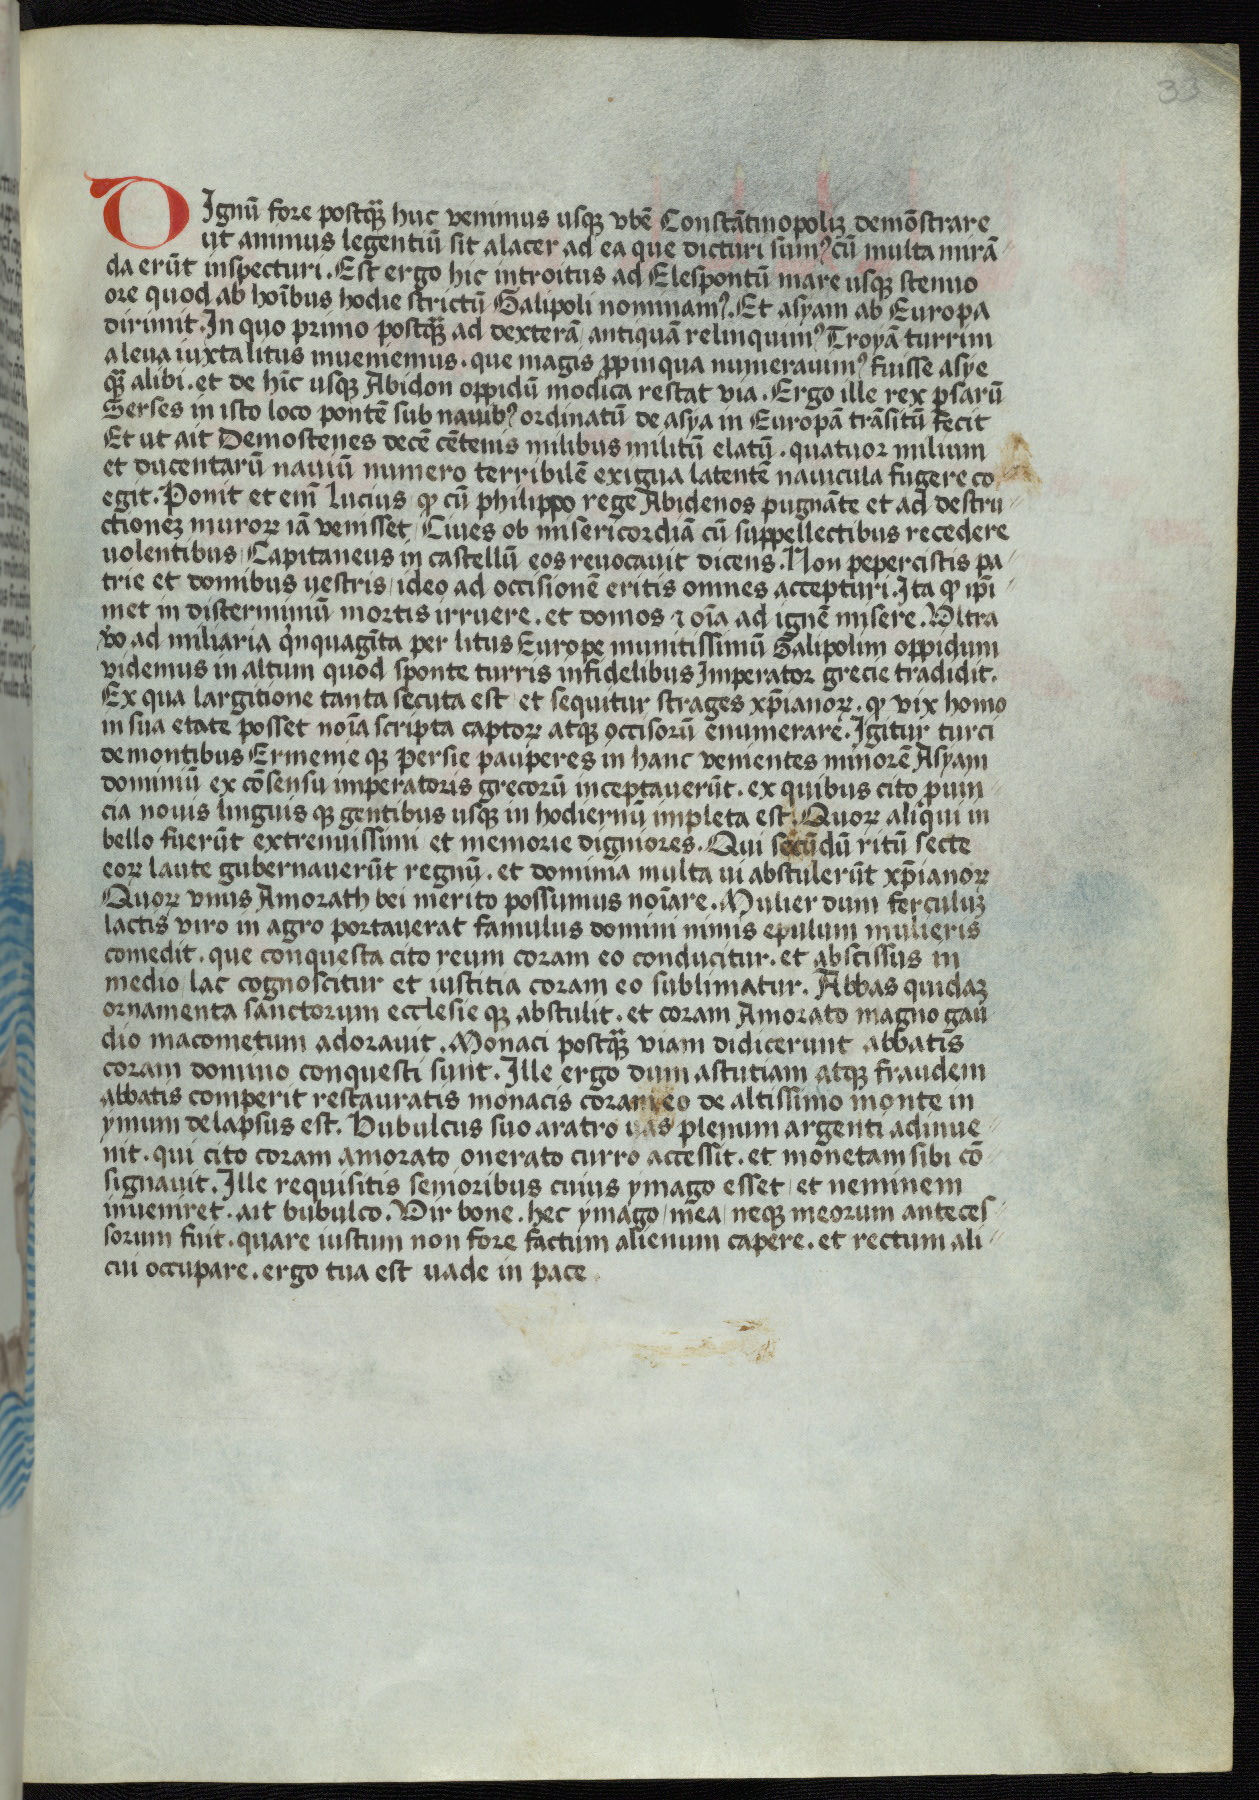 33
DIgnū fore postqȝ huc venimus usqȝ vbē Constātinopoliȝ demōstrare
ut animus legentiū sit alacer ad ea que dicturi sum⁹ cū multa mirā
da erūt inspecturi. Est ergo hic introitus ad Elespontū mare usqȝ stenuo
ore quod ab hoībus hodie strictū Galipoli nominam⁹. Et asyam ab Europa
dirimit. In quo primo postqȝ ad dexterā antiquā relinquim⁹ Troyā turrim
a leua iuxta litus inuenimus. que magis ꝓpinqua numerauim⁹ fuisse asye
qȝ alibi. et de hīc usqȝ Abidon oppidū modica restat via. Ergo ille rex ꝑsarū
Serses in isto loco pontē sub nauib⁹ ordinatū de asya in Europā trāsitū fecit
Et ut ait Demostenes decē cētenis milibus militū elatū. quatuor milium
et ducentarū nauiū numero terribilē exigua latentē nauicula fugere co
egit. Ponit et eni Lucius qȝ cū philippo rege Abidenos pugnāte et ad destru
ctioneȝ muroꝝ iā venisset / Ciues ob misericordiā cū suppellectibus recedere
uolentibus / Capitaneus in castellū eos reuocauit dicens. Non pepercistis pa
trie et domibus uestris / ideo ad occisionē eritis omnes accepturi. Ita qȝ ipī
met in disterminiū mortis irruere. et domos ⁊ oīa ad ignē misere. Vltra
v̊o ad miliaria qⁱnquagīta per litus Europe munitissimū Galipolim oppidum
videmus in altum quod sponte turris infidelibus Imperator grecie tradidit.
Ex qua largitione tanta secuta est et sequitur strages xp̄ianoꝝ. qȝ vix homo
in sua etate posset noīa scripta captoꝝ atqȝ occisorū enumerare. Igitur turci
de montibus Ermenie qȝ Persie pauperes in hanc venientes minorē Asyam
dominiū ex cōsensu imperatoris grecorū inceptauerūt. ex quibus cito ꝓuin
cia nouis linguis qȝ gentibus usqȝ in hodiernū impleta est. Quoꝝ aliqui in
bello fuerūt extrenuissimi et memorie digniores. Qui secūdū ritū secte
eoꝝ laute gubernauerūt regnū. et dominia multa ui abstulerūt xp̄ianoꝝ
Quoꝝ vnus Amorath bei merito possumus noīare. Mulier dum ferculuȝ
lactis viro in agro portauerat famulus domini nimis epulum mulieris
comedit. que conquesta cito reum coram eo conducitur. et abscissus in
medio / lac cognoscitur et iustitia coram eo sublimatur. Abbas quidaȝ
ornamenta sanctorum ecclesie qȝ abstulit. et coram Amorato magno gau
dio macometum adorauit. Monaci postqȝ viam didicerunt abbatis
coram domino conquesti sunt. Ille ergo dum astutiam atqȝ fraudem
abbatis comperit restauratis monacis coram eo de altissimo monte in
ymum delapsus est. Bubulcus suo aratro uas plenum argenti adinue
nit. qui cito coram amorato onerato curro accessit. et monetam sibi cō
signauit. Ille requisitis senioribus cuius ymago esset / et neminem
inueniret. ait bubulco. Vir bone. hec ymago / mea / neqȝ meorum anteces
sorum fuit. quare iustum non fore factum alienum capere. et rectum ali
cui occupare. ergo tua est uade in pace